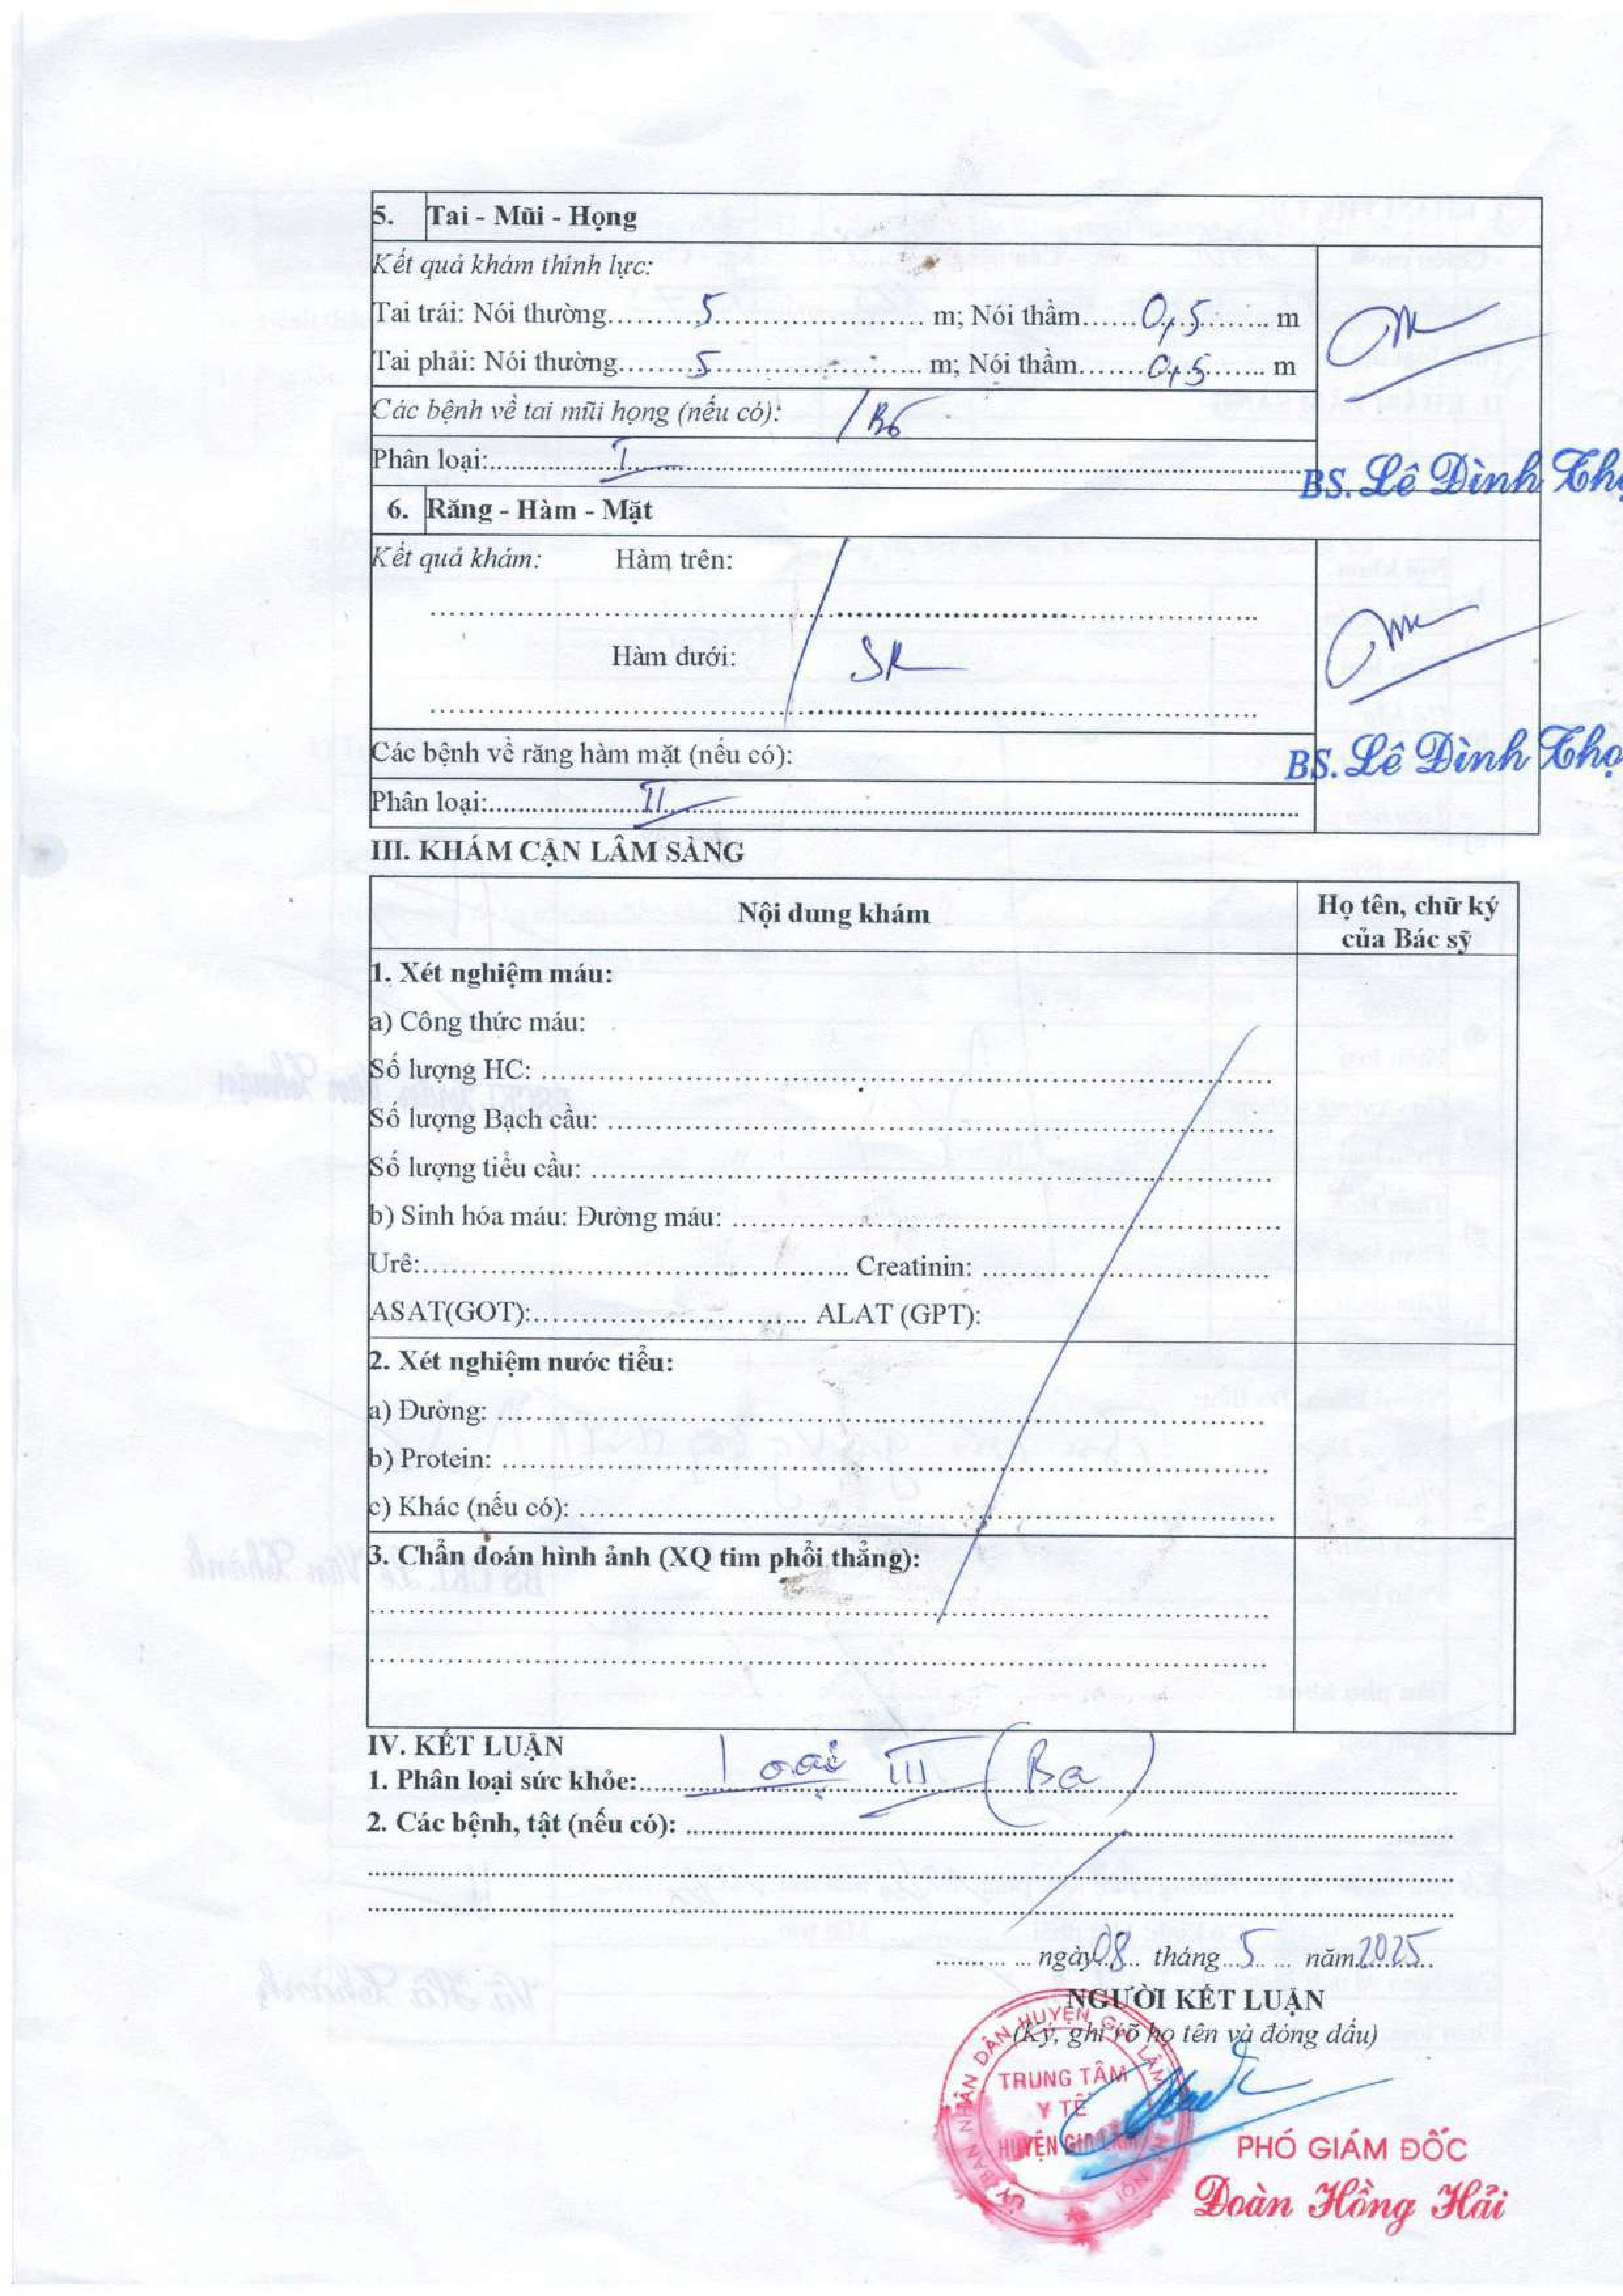 5. Tai - Mũi - Họng
Kết quả khám thính lực:
Tai trái: Nói thường.........5........................ m; Nói thầm......0,5......... m
Tai phải: Nói thường.........5........................ m; Nói thầm.......0,5........ m
Các bệnh về tai mũi họng (nếu có):
Phân loại:....................I....................
BS. Lê Đình Thọ
6. Răng - Hàm - Mặt
Kết quả khám: Hàm trên:
Hàm dưới: SR
Các bệnh về răng hàm mặt (nếu có):
BS. Lê Đình Thọ
Phân loại:....................II....................
III. KHÁM CẬN LÂM SÀNG
Nội dung khám
Họ tên, chữ ký
của Bác sỹ
1. Xét nghiệm máu:
a) Công thức máu:
Số lượng HC: ....................
Số lượng Bạch cầu: ....................
Số lượng tiểu cầu: ....................
b) Sinh hóa máu: Đường máu: ....................
Urê:.................... Creatinin: ....................
ASAT(GOT):.................... ALAT (GPT):
2. Xét nghiệm nước tiểu:
a) Đường: ....................
b) Protein: ....................
c) Khác (nếu có): ....................
3. Chẩn đoán hình ảnh (XQ tim phổi thẳng):
IV. KẾT LUẬN
1. Phân loại sức khỏe:..........Loại III (Ba)..........
2. Các bệnh, tật (nếu có): ....................
......... ... ngày 08 tháng 5 năm 2025
NGƯỜI KẾT LUẬN
(Ký, ghi rõ họ tên và đóng dấu)
ỦY BAN NHÂN DÂN HUYỆN GIA LÂM
TRUNG TÂM
Y TẾ
HUYỆN GIA LÂM
PHÓ GIÁM ĐỐC
Đoàn Hồng Hải